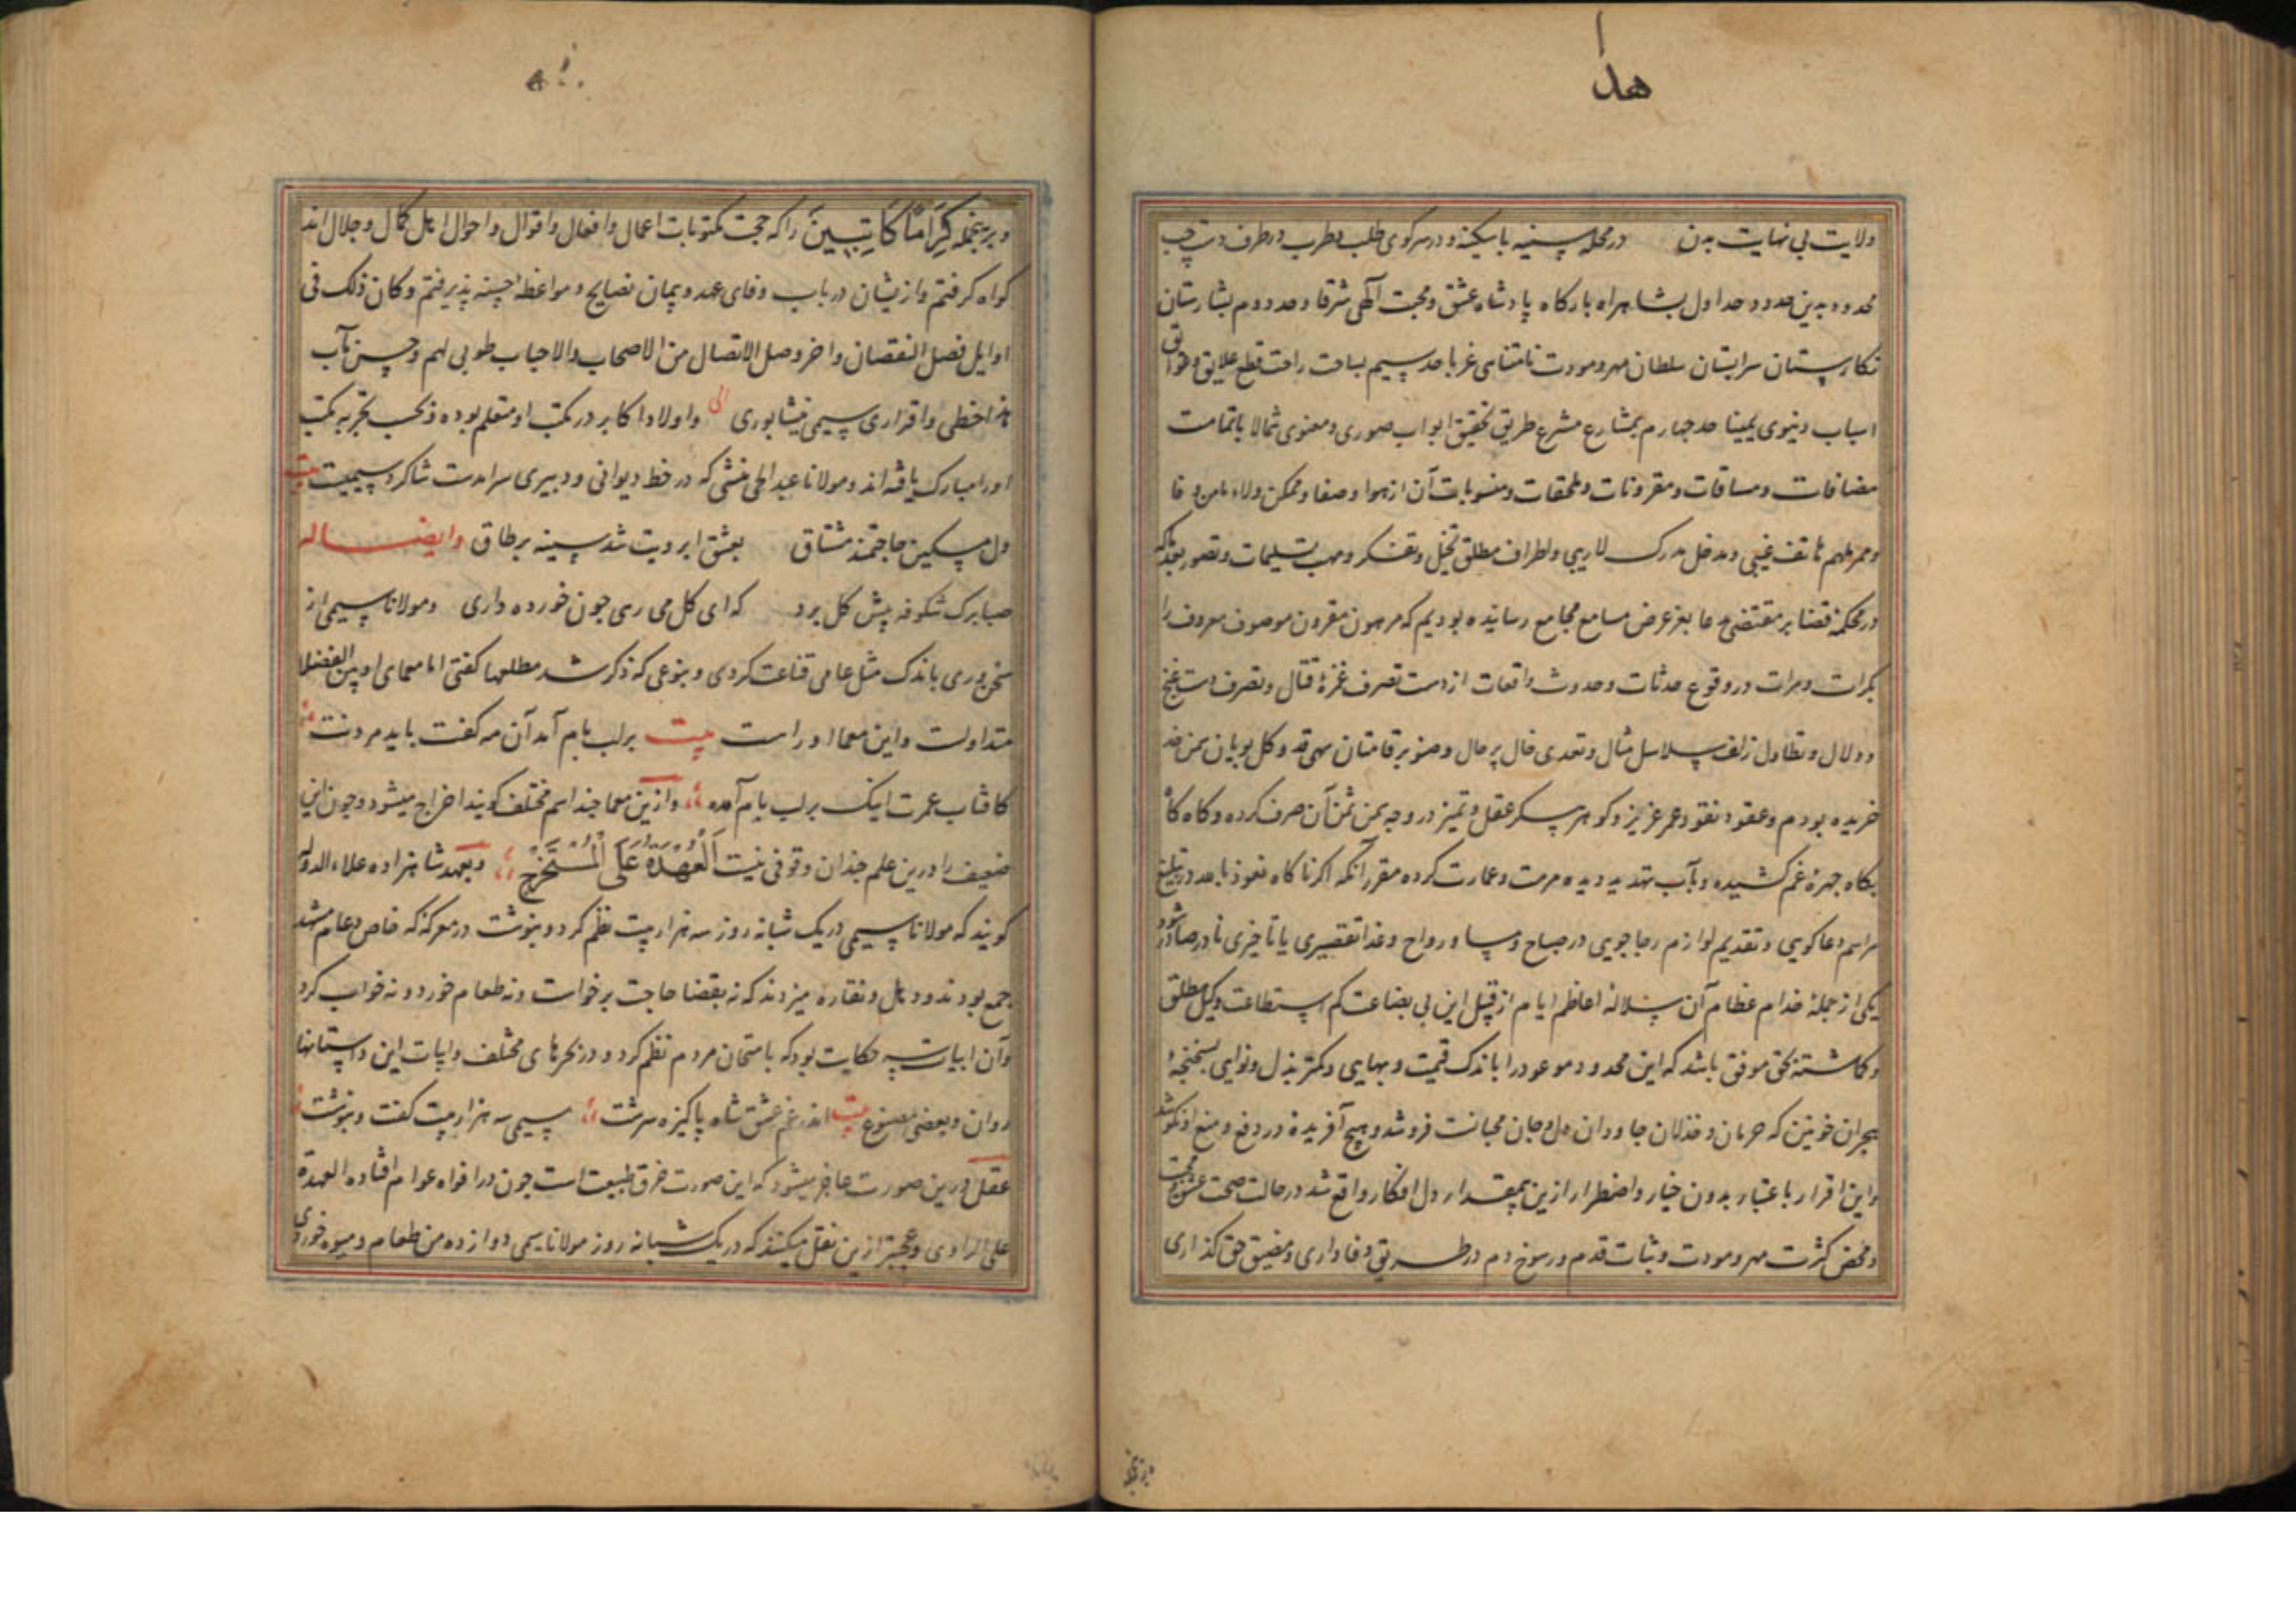 هدا
ولایت بی نهایت بدن در محله سینه با سکینه و در سر کوی طلب و طرب در طرف دست چپ
محدود بدین حدود حد اول بشاهراه بارکاه پادشاه عشق و محبت آلهی شرقا و حد دوم بشارستان
نکارستان سرابستان سلطان مهر و مودت نامتناهی غربا حد سیم بساحت راحت قطع علایق و عوایق
اسباب دنیوی یمینا حد چهارم بمشارع مشرع طریق تحقیق ابواب صوری و معنوی شمالا با تمامت
مضافات و مسافات و مقرونات و ملحقات و منسوبات آن از هوا و صفا و ممکن ولاء
و ممر ملهم هاتف غیبی و مدخل مدرک لاریبی و اطراف مطلق تخیل و تفکر و مهب تسلیمات و تصور
در محکمه قضا بر مقتضی مدعا بعز عرض مسامع مجامع رسانیده بودیم که مرهون مقرون موصوف معروف را
بکرات و مرات در وقوع حدثات و حدوث واقعات از دست تصرف غمزهٔ قتال و تصرف دست غنج
و دلال و تطاول زلف سلاسل مثال و تعدی خال پر حال و صنوبر قامتان سهی قد و کل بویان سمن خد
خریده بودم و عقود نقود عمر عزیز و کوهر سکر عقل و تمیز در وجه یمن ثمن آن صرف کرده و کاه کاه
بکاه چهرهٔ غم کشیده و بآب تهدید دیده مرمت و عمارت کرده مقرر آنکه اکر ناکاه نعوذ بالله در تبلیغ
مراسم دعاکویی و تقدیم لوازم رضاجویی در صباح و مسا و رواح و غدا تقصیری یا تاخیری نادر صادر شود
یکی از جملهٔ خدام عظام آن سلالهٔ اعاظم ایام از قبل این بی بضاعت کم استطاعت وکیل مطلق
و کماشتهٔ بحق موفق باشد که این محدود موعود را باندک قیمت و بهایی و کمتر بذل و نوایی بشکنجهٔ
هجران خونین که حرمان و خذلان جاودان دل و جان مجانست فروشد و هیچ آفریده در دفع و منع او نکوشد
و این اقرار با عتبار بدون خیار و اضطرار ازین بیمقدار دل افکار واقع شد در حالت صحت عشق و محبت
و محض کثرت مهر و مودت و ثبات قدم و رسوخ دم در طریق وفاداری و مضیق حق کذاری
و برینجمله کِرَامًا کَاتِبِینَ را که حجت مکتوبات اعمال و افعال و اقوال و احوال اهل کمال و جلال اند
کواه کرفتم و از یشان در باب وفای عهد و پیمان نصایح و مواعظ حسنه پذیرفتم و کان ذلک فی
اوایل فصل النقصان و اخر وصل الاتصال من الاصحاب والاحباب طوبی لهم و حسن مآب
هذا خطی و اقراری سیمی نیشابوری الی و اولاد اکابر در مکتب او متعلم بوده و تجربه مکتب
اورا مبارک یافته اند و مولانا عبد الحی منشی که در خط دیوانی و دبیری سرامدست شاکرد سیمیست بیت
دل مسکین حاجتمند مشتاق بعشق ابرویت شد سینه بر طاق و ایضا له
صبا برک شکوفه پیش کل برد که ای کل می رسی چون خورده داری و مولانا سیمی از
سخنوری باندک مثل عامی قناعت کردی و بنوعی که ذکر شد مطلعها کفتی اما معمای او بین الفضلا
متداولست و این معما او راست بیت بر لب بام آمد آن مه کفت باید مردنت
کافتاب عمرت اینک بر لب بام آمده و ازین معما چند اسم مختلف کویند اخراج میشود و چون این
ضعیف را درین علم چندان وقوفی نیست اَلْعُهْدَةُ عَلَی الْمُسْتَخْرِجِ و بعهد شاهزاده علاء الدوله
کویند که مولانا سیمی در یک شبانه روز سه هزار بیت نظم کرد و بنوشت در معرکهٔ که خاص و عام مشهد
جمع بودند و دهل و نقاره میزدند که نه بقضا حاجت برخواست و نه طعام خورد و نه خواب کرد
و آن ابیات سه حکایت بود که بامتحان مردم نظم کرد و در بحرهای مختلف و ابیات این داستانها
روان و بعضی مصنوع بیت اندر غم عشق شاه پاکیزه سرشت سیمی سه هزار بیت کفت و بنوشت
عقل درین صورت عاجز میشود که این صورت خرق طبیعت است چون در افواه عوام افتاده العهدة
علی الراوی و عجبتر ازین نقل میکنند که در یک شبانه روز مولانا سیمی دوازده من طعام و میوه خوردی